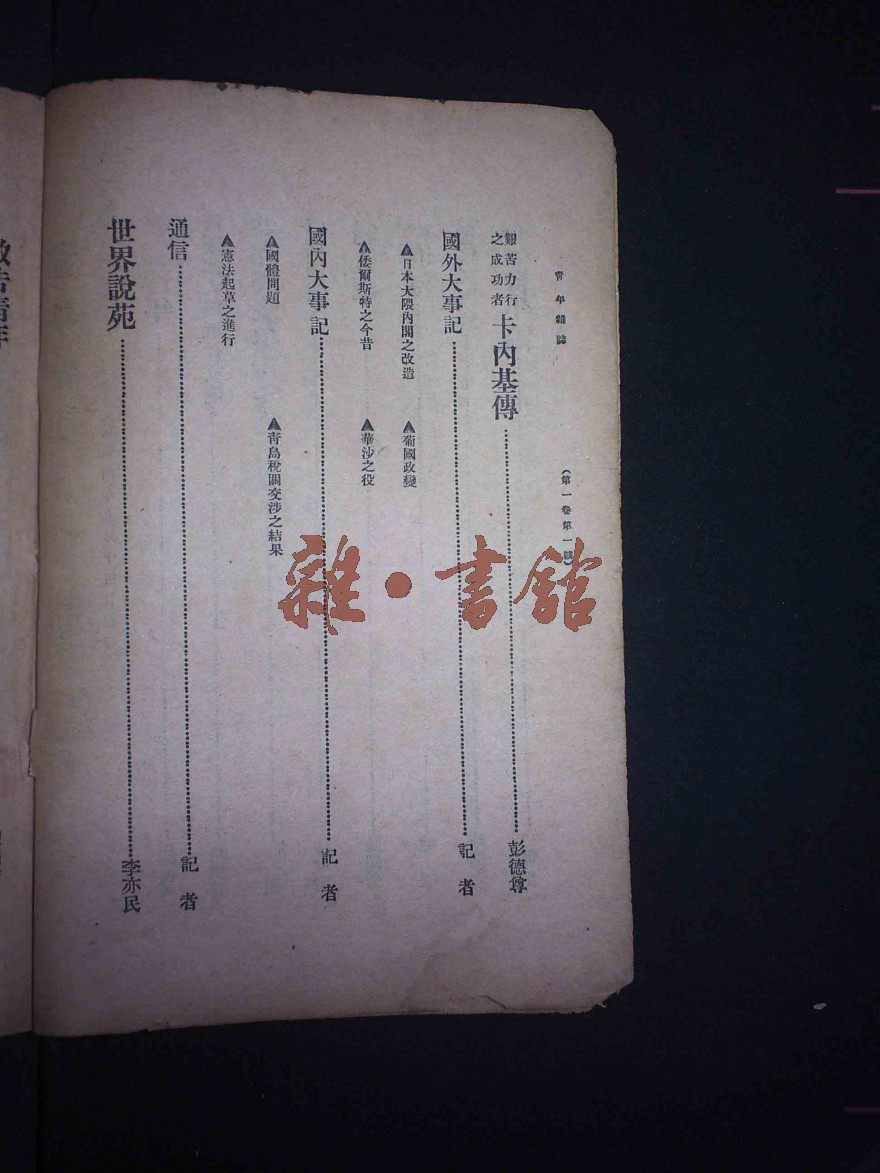 青年雜誌
(第一卷第一號)
艱苦力行
之成功者
卡內基傳
彭德尊
國外大事記
記者
▲日本大隈內閣之改造
▲葡國政變
▲倭爾斯特之今昔
▲華沙之役
國內大事記
記者
▲國體問題
▲青島稅關交涉之結果
▲憲法起草之進行
通信
記者
世界說苑
李亦民
敬告青年
雜·書館